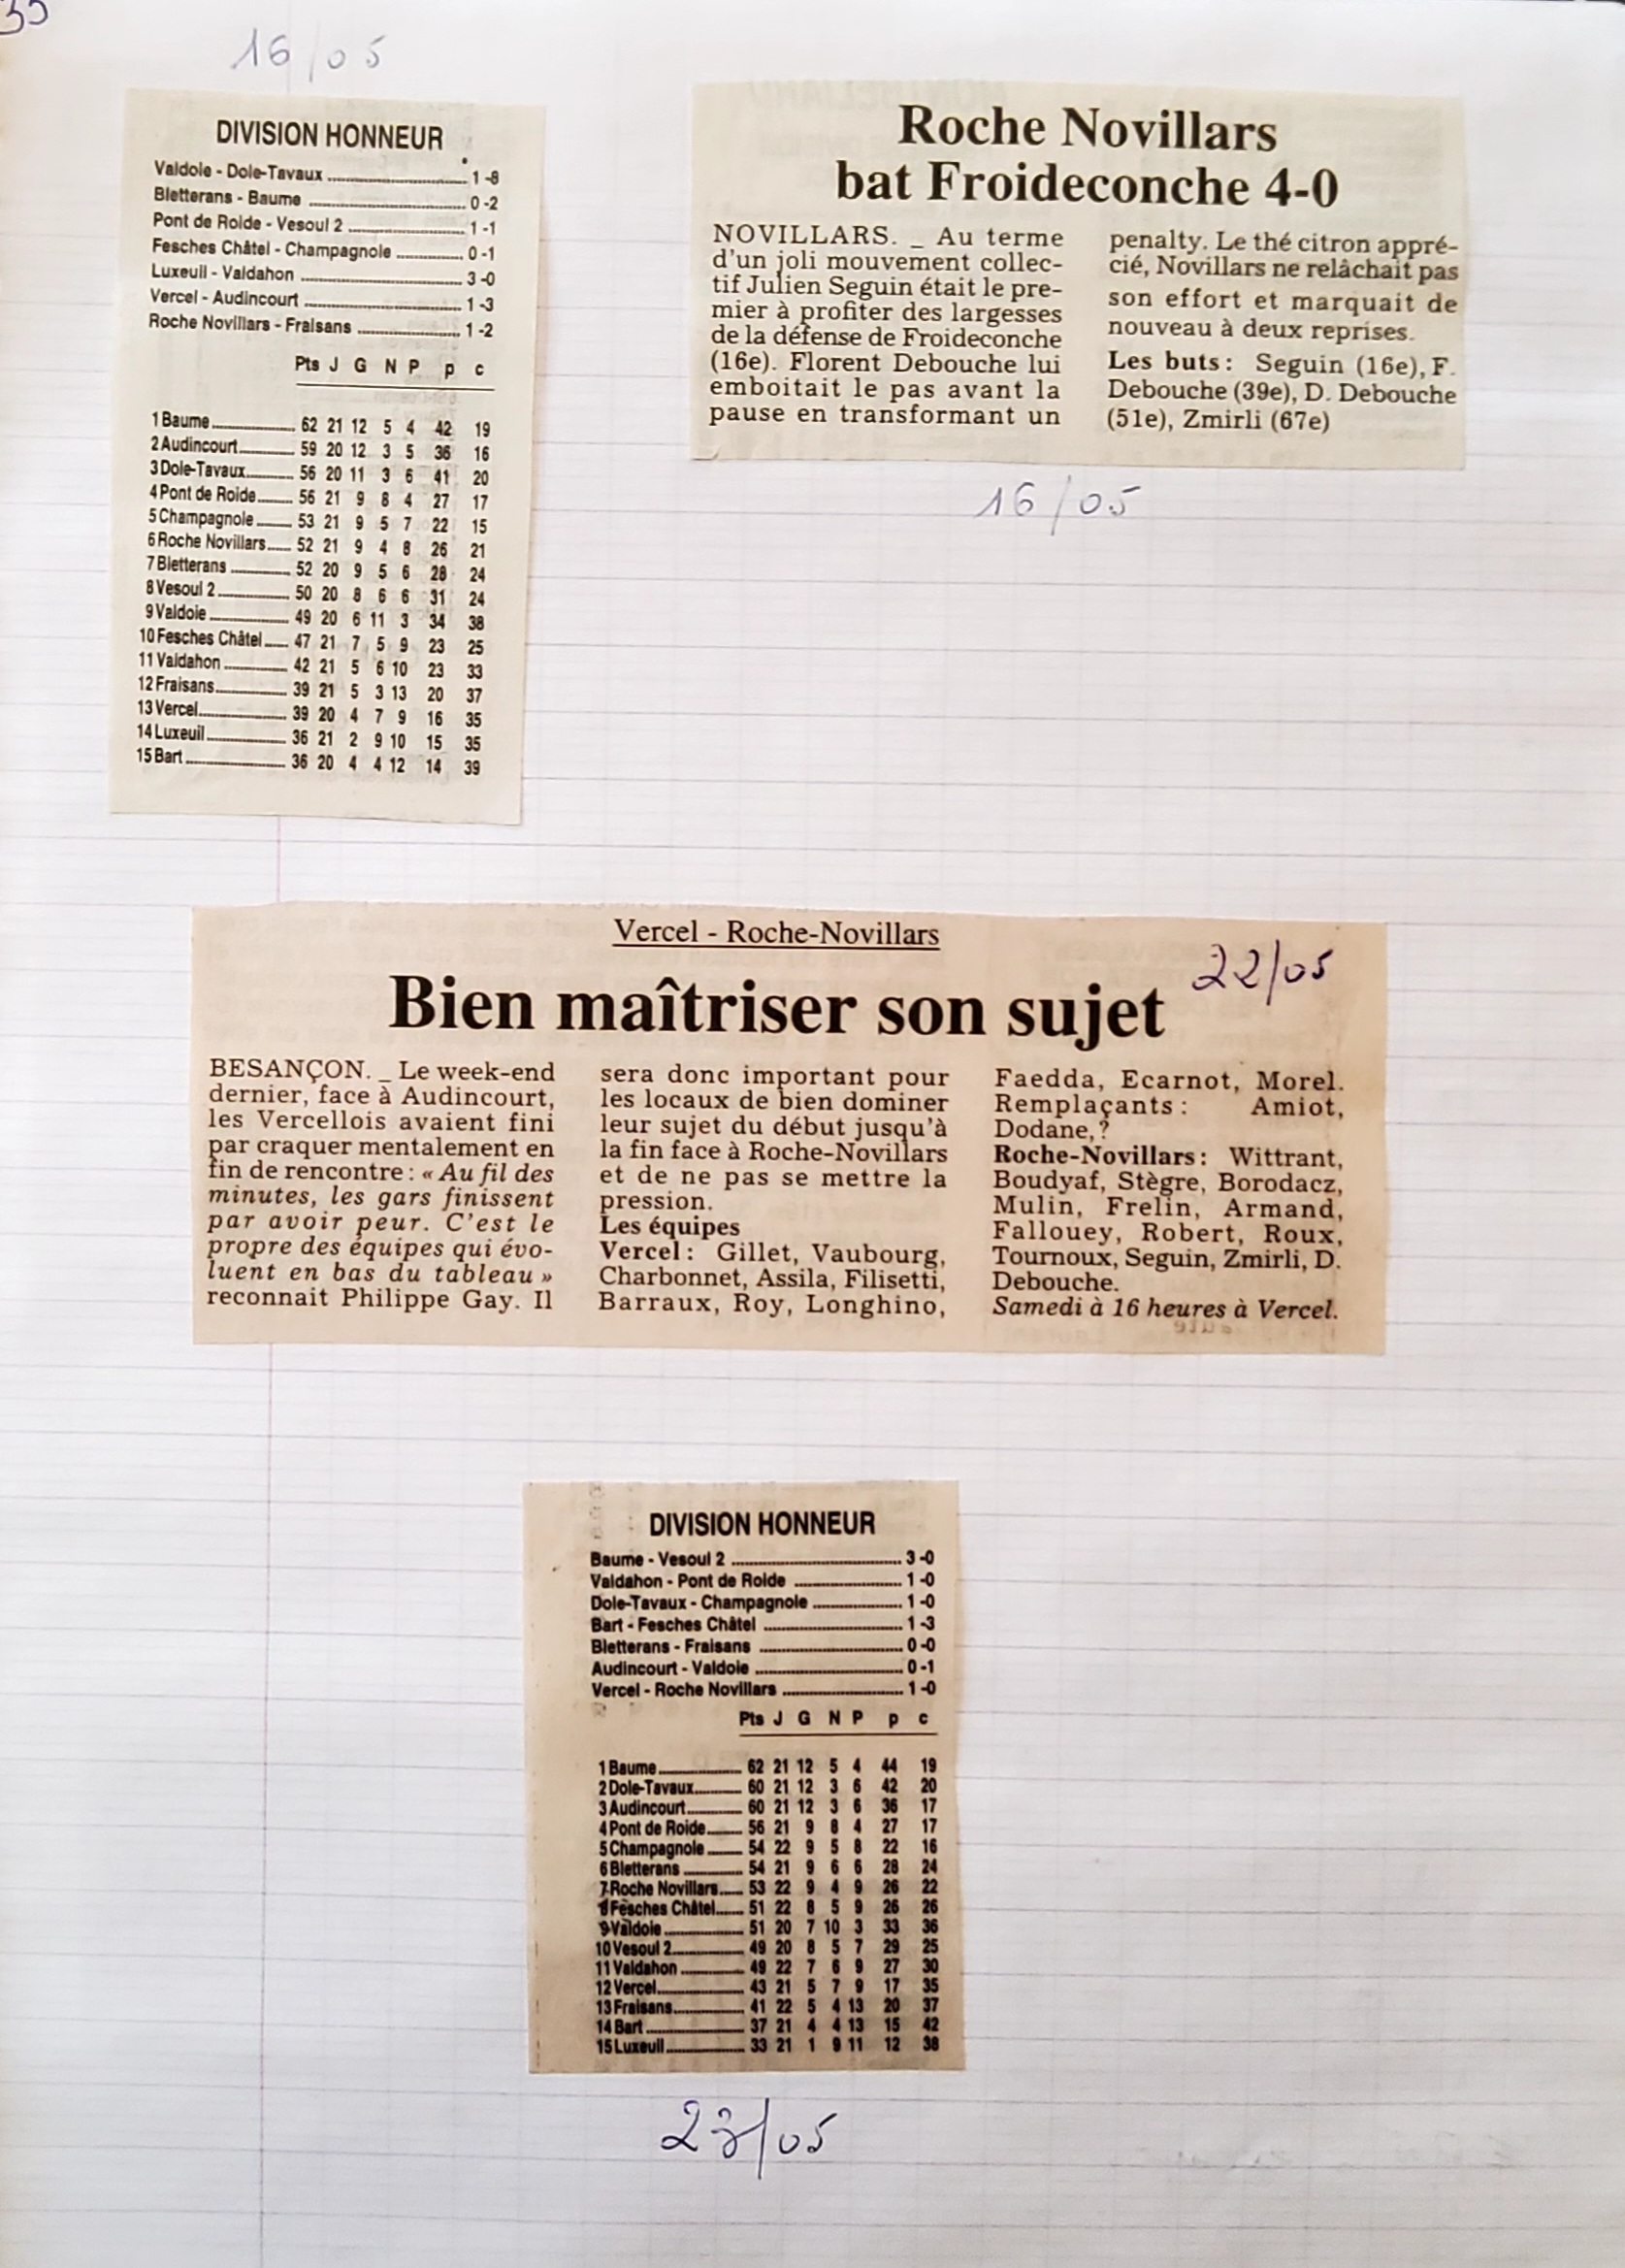 35
16/05
DIVISION HONNEUR
Valdoie - Dole-Tavaux ........ 1 -8
Bletterans - Baume ........ 0 -2
Pont de Roide - Vesoul 2 ........ 1 -1
Fesches Châtel - Champagnole ........ 0 -1
Luxeuil - Valdahon ........ 3 -0
Vercel - Audincourt ........ 1 -3
Roche Novillars - Fraisans ........ 1 -2
Pts J G N P p c
1 Baume ........ 62 21 12 5 4 42 19
2 Audincourt ........ 59 20 12 3 5 36 16
3 Dole-Tavaux ........ 56 20 11 3 6 41 20
4 Pont de Roide ........ 56 21 9 8 4 27 17
5 Champagnole ........ 53 21 9 5 7 22 15
6 Roche Novillars ........ 52 21 9 4 8 26 21
7 Bletterans ........ 52 20 9 5 6 28 24
8 Vesoul 2 ........ 50 20 8 6 6 31 24
9 Valdoie ........ 49 20 6 11 3 34 38
10 Fesches Châtel ........ 47 21 7 5 9 23 25
11 Valdahon ........ 42 21 5 6 10 23 33
12 Fraisans ........ 39 21 5 3 13 20 37
13 Vercel ........ 39 20 4 7 9 16 35
14 Luxeuil ........ 36 21 2 9 10 15 35
15 Bart ........ 36 20 4 4 12 14 39
Roche Novillars
bat Froideconche 4-0
NOVILLARS. _ Au terme
d'un joli mouvement collec-
tif Julien Seguin était le pre-
mier à profiter des largesses
de la défense de Froideconche
(16e). Florent Debouche lui
emboitait le pas avant la
pause en transformant un
penalty. Le thé citron appré-
cié, Novillars ne relâchait pas
son effort et marquait de
nouveau à deux reprises.
Les buts : Seguin (16e), F.
Debouche (39e), D. Debouche
(51e), Zmirli (67e)
16/05
Vercel - Roche-Novillars
22/05
Bien maîtriser son sujet
BESANÇON. _ Le week-end
dernier, face à Audincourt,
les Vercellois avaient fini
par craquer mentalement en
fin de rencontre : « Au fil des
minutes, les gars finissent
par avoir peur. C'est le
propre des équipes qui évo-
luent en bas du tableau »
reconnait Philippe Gay. Il
sera donc important pour
les locaux de bien dominer
leur sujet du début jusqu'à
la fin face à Roche-Novillars
et de ne pas se mettre la
pression.
Les équipes
Vercel : Gillet, Vaubourg,
Charbonnet, Assila, Filisetti,
Barraux, Roy, Longhino,
Faedda, Ecarnot, Morel.
Remplaçants : Amiot,
Dodane,?
Roche-Novillars : Wittrant,
Boudyaf, Stègre, Borodacz,
Mulin, Frelin, Armand,
Fallouey, Robert, Roux,
Tournoux, Seguin, Zmirli, D.
Debouche.
Samedi à 16 heures à Vercel.
DIVISION HONNEUR
Baume - Vesoul 2 ........ 3 -0
Valdahon - Pont de Roide ........ 1 -0
Dole-Tavaux - Champagnole ........ 1 -0
Bart - Fesches Châtel ........ 1 -3
Bletterans - Fraisans ........ 0 -0
Audincourt - Valdoie ........ 0 -1
Vercel - Roche Novillars ........ 1 -0
Pts J G N P p c
1 Baume ........ 62 21 12 5 4 44 19
2 Dole-Tavaux ........ 60 21 12 3 6 42 20
3 Audincourt ........ 60 21 12 3 6 36 17
4 Pont de Roide ........ 56 21 9 8 4 27 17
5 Champagnole ........ 54 22 9 5 8 22 16
6 Bletterans ........ 54 21 9 6 6 28 24
7 Roche Novillars ........ 53 22 9 4 9 26 22
8 Fesches Châtel ........ 51 22 8 5 9 26 26
9 Valdoie ........ 51 20 7 10 3 33 36
10 Vesoul 2 ........ 49 20 8 5 7 29 25
11 Valdahon ........ 49 22 7 6 9 27 30
12 Vercel ........ 43 21 5 7 9 17 35
13 Fraisans ........ 41 22 5 4 13 20 37
14 Bart ........ 37 21 4 4 13 15 42
15 Luxeuil ........ 33 21 1 9 11 12 38
23/05